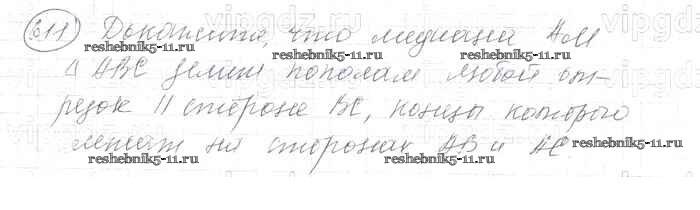 611 Докажите, что медиана AM
reshebnik5-11.ru reshebnik5-11.ru
Δ ABC делит пополам любой от-
резок || стороне BC, концы которого
лежат на сторонах AB и AC.
reshebnik5-11.ru reshebnik5-11.ru
vipgdz